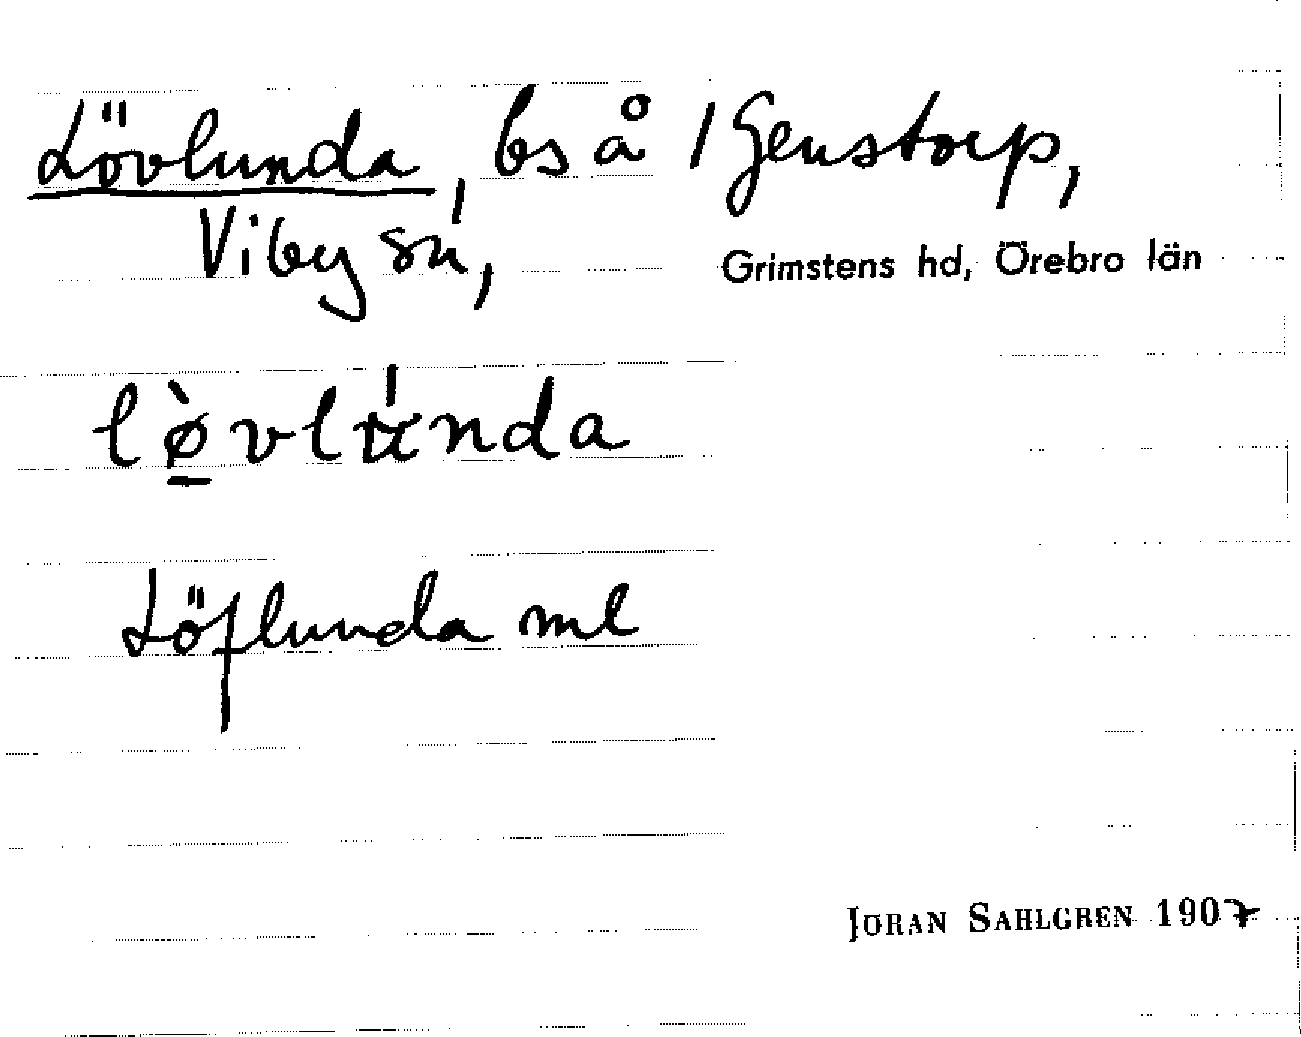 Lövlunda, bs å 1 Genstorp,
Viby sn,
Grimstens hd, Örebro län
lø̀vlu̇nda
Löflunda ml
JÖRAN SAHLGREN 1907